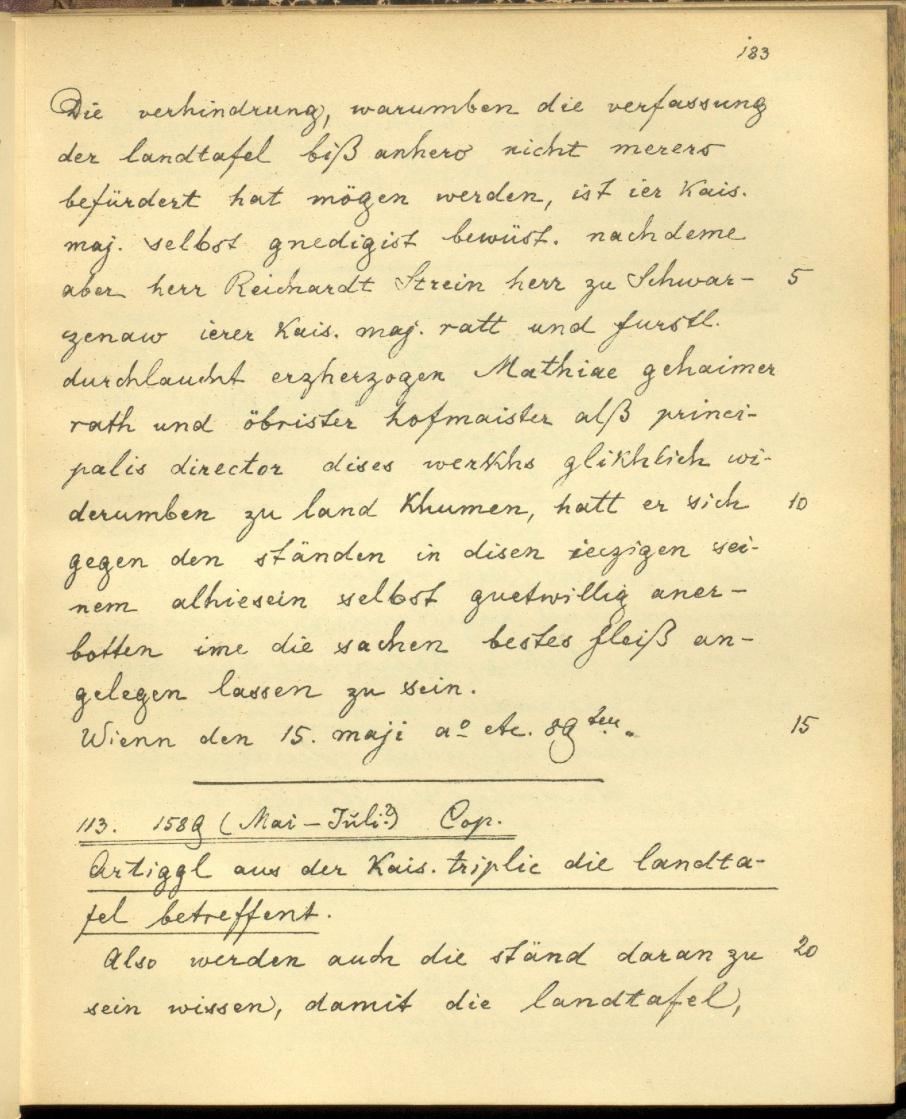 183
Die verhindrung, warumben die verfassung
der landtafel biß anhero nicht merers
befürdert hat mögen werden, ist ier Kais.
maj. selbst gnedigist bewüst. nachdeme
aber herr Reichardt Strein herr zu Schwar- 5
zenaw ierer Kais. maj. ratt und furstl.
durchlaucht erzherzogen Mathiae gehaimer
rath und öbrister hofmaister alß princi-
palis director dises werkhs glikhlich wi-
derumben zu land khumen, hatt er sich 10
gegen den ständen in disen iezigen sei-
nem alhiesein selbst guetwillig aner-
botten ime die sachen bestes fleiß an-
gelegen lassen zu sein.
Wienn den 15. maji aº etc. 89ten. 15
113. 1589 (Mai-Juli?) Cop.
Artiggl aus der Kais. triplic die landta-
fel betreffent.
Also werden auch die ständ daran zu 20
sein wissen, damit die landtafel,